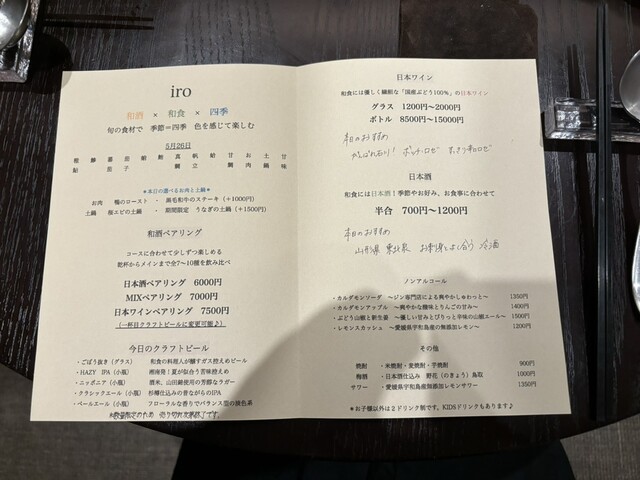 iro
和酒 × 和食 × 四季
旬の食材で 季節=四季 色を感じて楽しむ
5月26日
＊本日の選べるお肉と土鍋＊
お肉 鴨のロースト ・ 黒毛和牛のステーキ（+1000円）
土鍋 桜エビの土鍋 ・ 期間限定 うなぎの土鍋（+1500円）
和酒ペアリング
コースに合わせて少しずつ楽しめる
乾杯からメインまで全7～10種を飲み比べ
日本酒ペアリング 6000円
MIXペアリング 7000円
日本ワインペアリング 7500円
（一杯目クラフトビールに変更可能♪）
今日のクラフトビール
・ごぼう抜き（グラス） 和食の料理人が醸すガス控えめビール
・HAZY IPA（小瓶） 湘南発！夏が似合う苦味控えめ
・ニッポニア（小瓶） 酒米、山田錦使用の芳醇なラガー
・クラシックエール（小瓶） 杉樽仕込みの昔ながらのIPA
・ペールエール（小瓶） フローラルな香りでバランス型の淡色系
※数量限定のため 売り切れ次第終了です。
日本ワイン
和食には優しく繊細な「国産ぶどう100%」の日本ワイン
グラス 1200円～2000円
ボトル 8500円～15000円
本日のおすすめ
日本酒
和食には日本酒！季節やお好み、お食事に合わせて
半合 700円～1200円
本日のおすすめ
山形県 東北泉 冷酒
ノンアルコール
・カルダモンソーダ ～ジン専門店による爽やかしゅわっと～ 1350円
・カルダモンアップル ～爽やかな酸味とりんごの甘み～ 1400円
・ぶどう山椒と新生姜 ～優しい甘みとぴりっと辛味の山椒エール～ 1500円
・レモンスカッシュ ～愛媛県宇和島産の無添加レモン～ 1200円
その他
焼酎 ・米焼酎・麦焼酎・芋焼酎 900円
梅酒 ・日本酒仕込み 野花（のきょう）鳥取 1000円
サワー ・愛媛県宇和島産無添加レモンサワー 1350円
＊お子様以外は2ドリンク制です。KIDSドリンクもあります♪